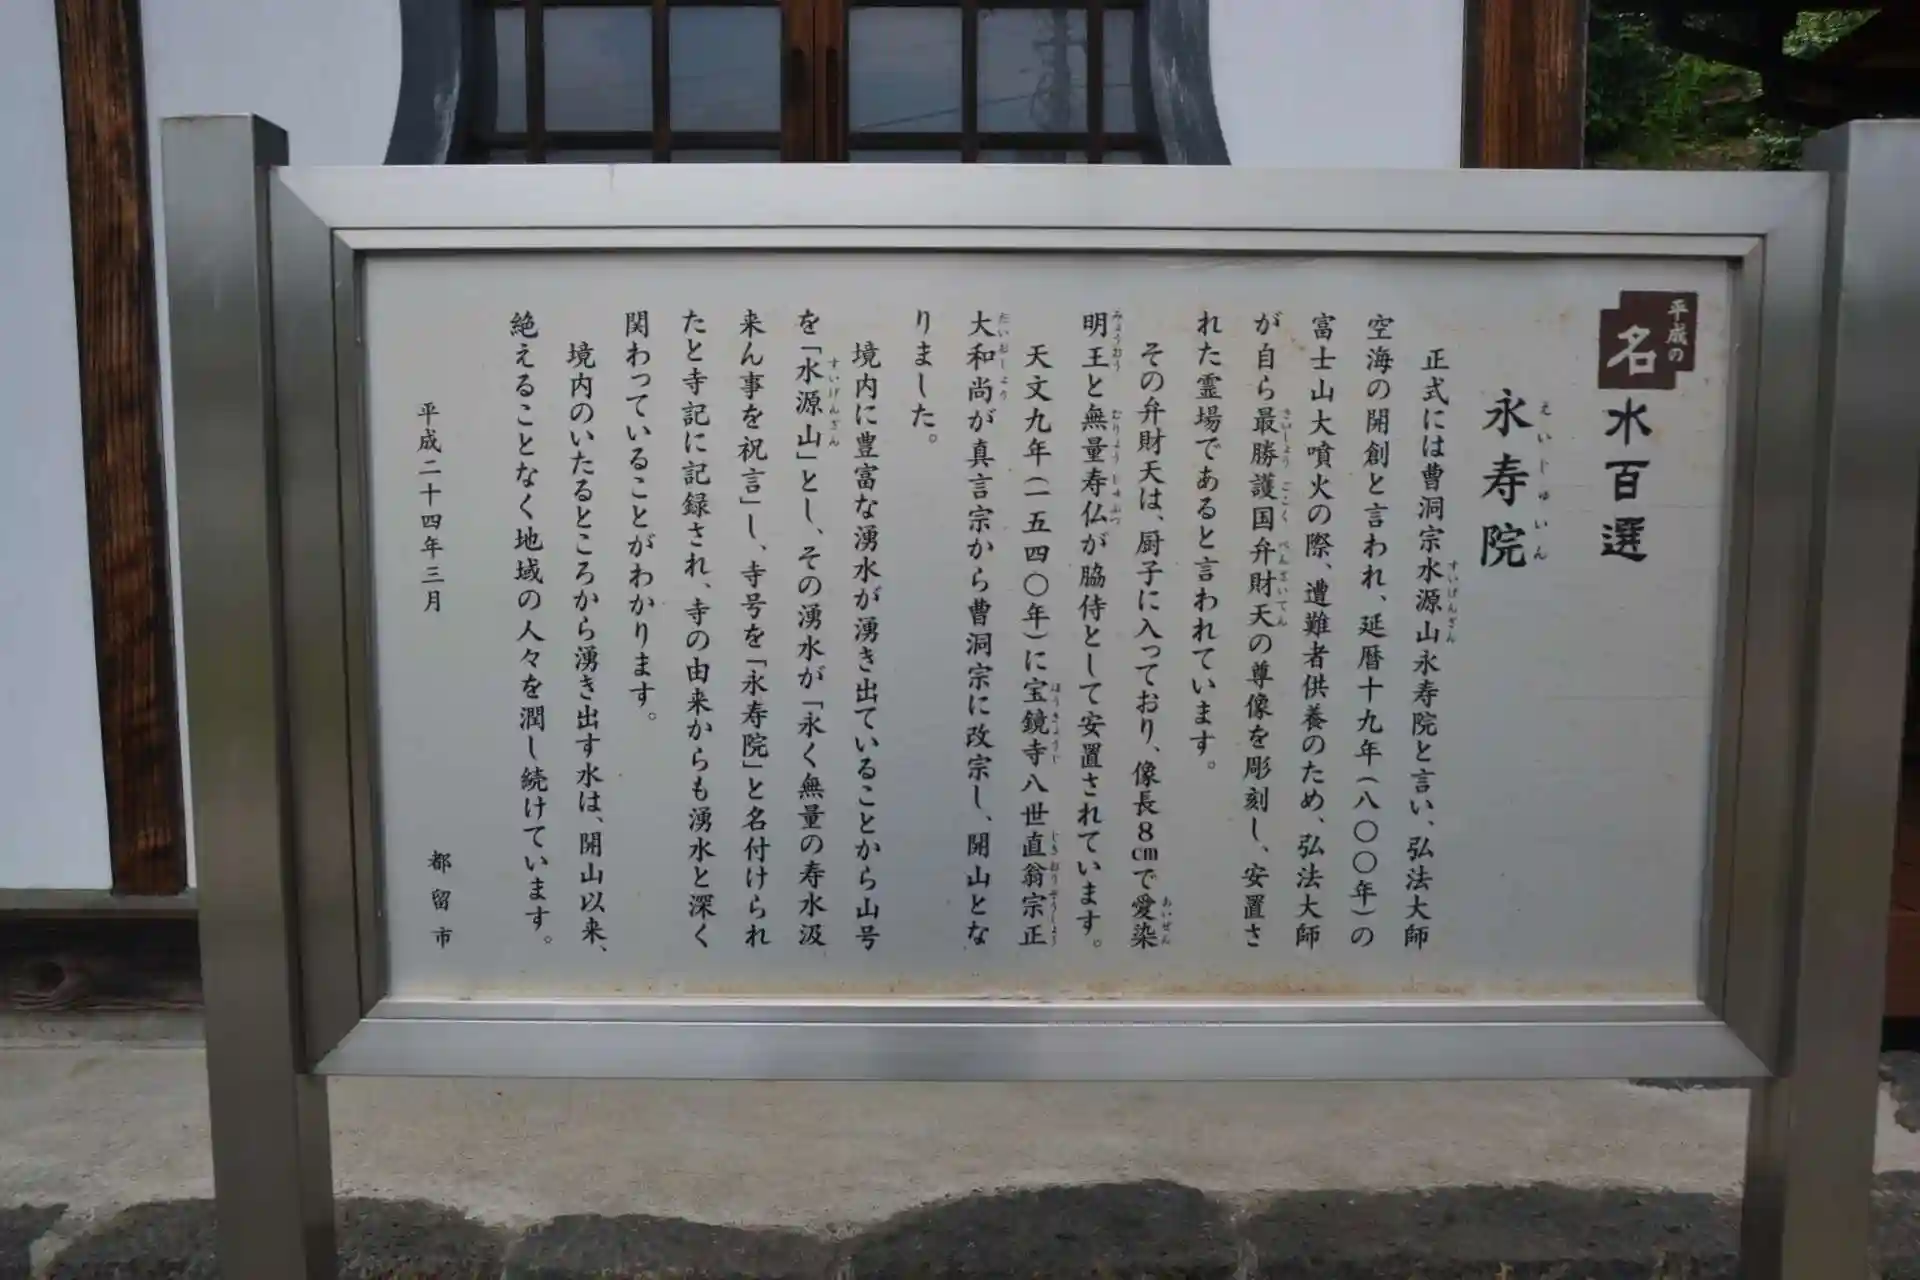 平成の
名水百選
永寿院
えいじゅいん
正式には曹洞宗水源山永寿院と言い、弘法大師
すいげんざん
空海の開創と言われ、延暦十九年(八〇〇年)の
富士山大噴火の際、遭難者供養のため、弘法大師
が自ら最勝護国弁財天の尊像を彫刻し、安置さ
さいしょう ごこく べんざいてん
れた霊場であると言われています。
その弁財天は、厨子に入っており、像長8cmで愛染
あいぜん
明王と無量寿仏が脇侍として安置されています。
みょうおう むりょうじゅぶつ
天文九年(一五四〇年)に宝鏡寺八世直翁宗正
ほうきょうじ じきおうそうしょう
大和尚が真言宗から曹洞宗に改宗し、開山とな
だいおしょう
りました。
境内に豊富な湧水が湧き出ていることから山号
を「水源山」とし、その湧水が「永く無量の寿水汲
すいげんざん
来ん事を祝言」し、寺号を「永寿院」と名付けられ
たと寺記に記録され、寺の由来からも湧水と深く
関わっていることがわかります。
境内のいたるところから湧き出す水は、開山以来、
絶えることなく地域の人々を潤し続けています。
平成二十四年三月
都留市